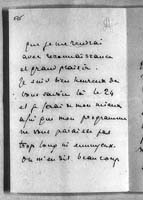 que je me rendrai
avec reconnaissance
et grand plaisir.
Je suis bien heureux de
vous savoir là le 24
et je ferai de mon mieux
afin que mon programme
ne vous paraisse pas
trop long ni ennuyeux.
On m'en dit beaucoup